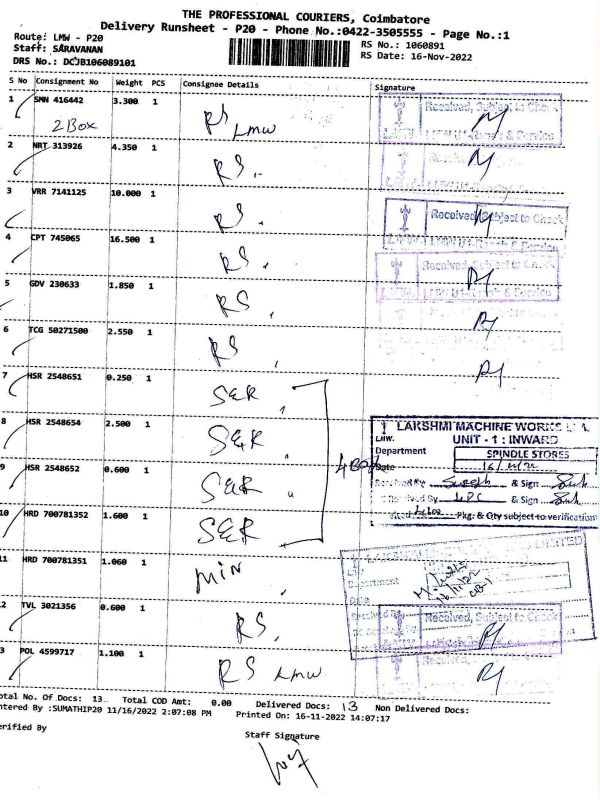 THE PROFESSIONAL COURIERS, Coimbatore
Delivery Runsheet - P20 - Phone No.:0422-3505555 - Page No.:1
Route: LMW - P20
RS No.: 1060891
Staff: SARAVANAN
RS Date: 16-Nov-2022
DRS No.: DCJB106089101
S No Consignment No Weight PCS Consignee Details Signature
1 SMN 416442 3.300 1 RS LMW
2 Box
2 NRT 313926 4.350 1 RS.
3 VRR 7141125 10.000 1 RS.
4 CPT 745065 16.500 1 RS.
5 GDV 230633 1.850 1 RS
6 TCG 50271500 2.550 1 RS
7 HSR 2548651 0.250 1 S&R
8 HSR 2548654 2.500 1 S&R
9 HSR 2548652 0.600 1 S&R
4 Box
10 HRD 700781352 1.600 1 S&R
11 HRD 700781351 1.060 1 min
2 TVL 3021356 0.600 1 RS,
3 POL 4599717 1.100 1 RS LMW
Received, Subject to Check
Received, Subject to Check
Received, Subject to Check
LAKSHMI MACHINE WORKS
LMW. UNIT - 1 : INWARD
Department SPINDLE STORES
Date 16/11/22
Received By Suresh & Sign
& Sign
Pkg. & Qty subject to verification
Department
Date
Received, Subject to Check
otal No. Of Docs: 13 Total COD Amt: 0.00 Delivered Docs: 13 Non Delivered Docs:
ntered By :SUMATHIP20 11/16/2022 2:07:08 PM Printed On: 16-11-2022 14:07:17
erified By
Staff Signature